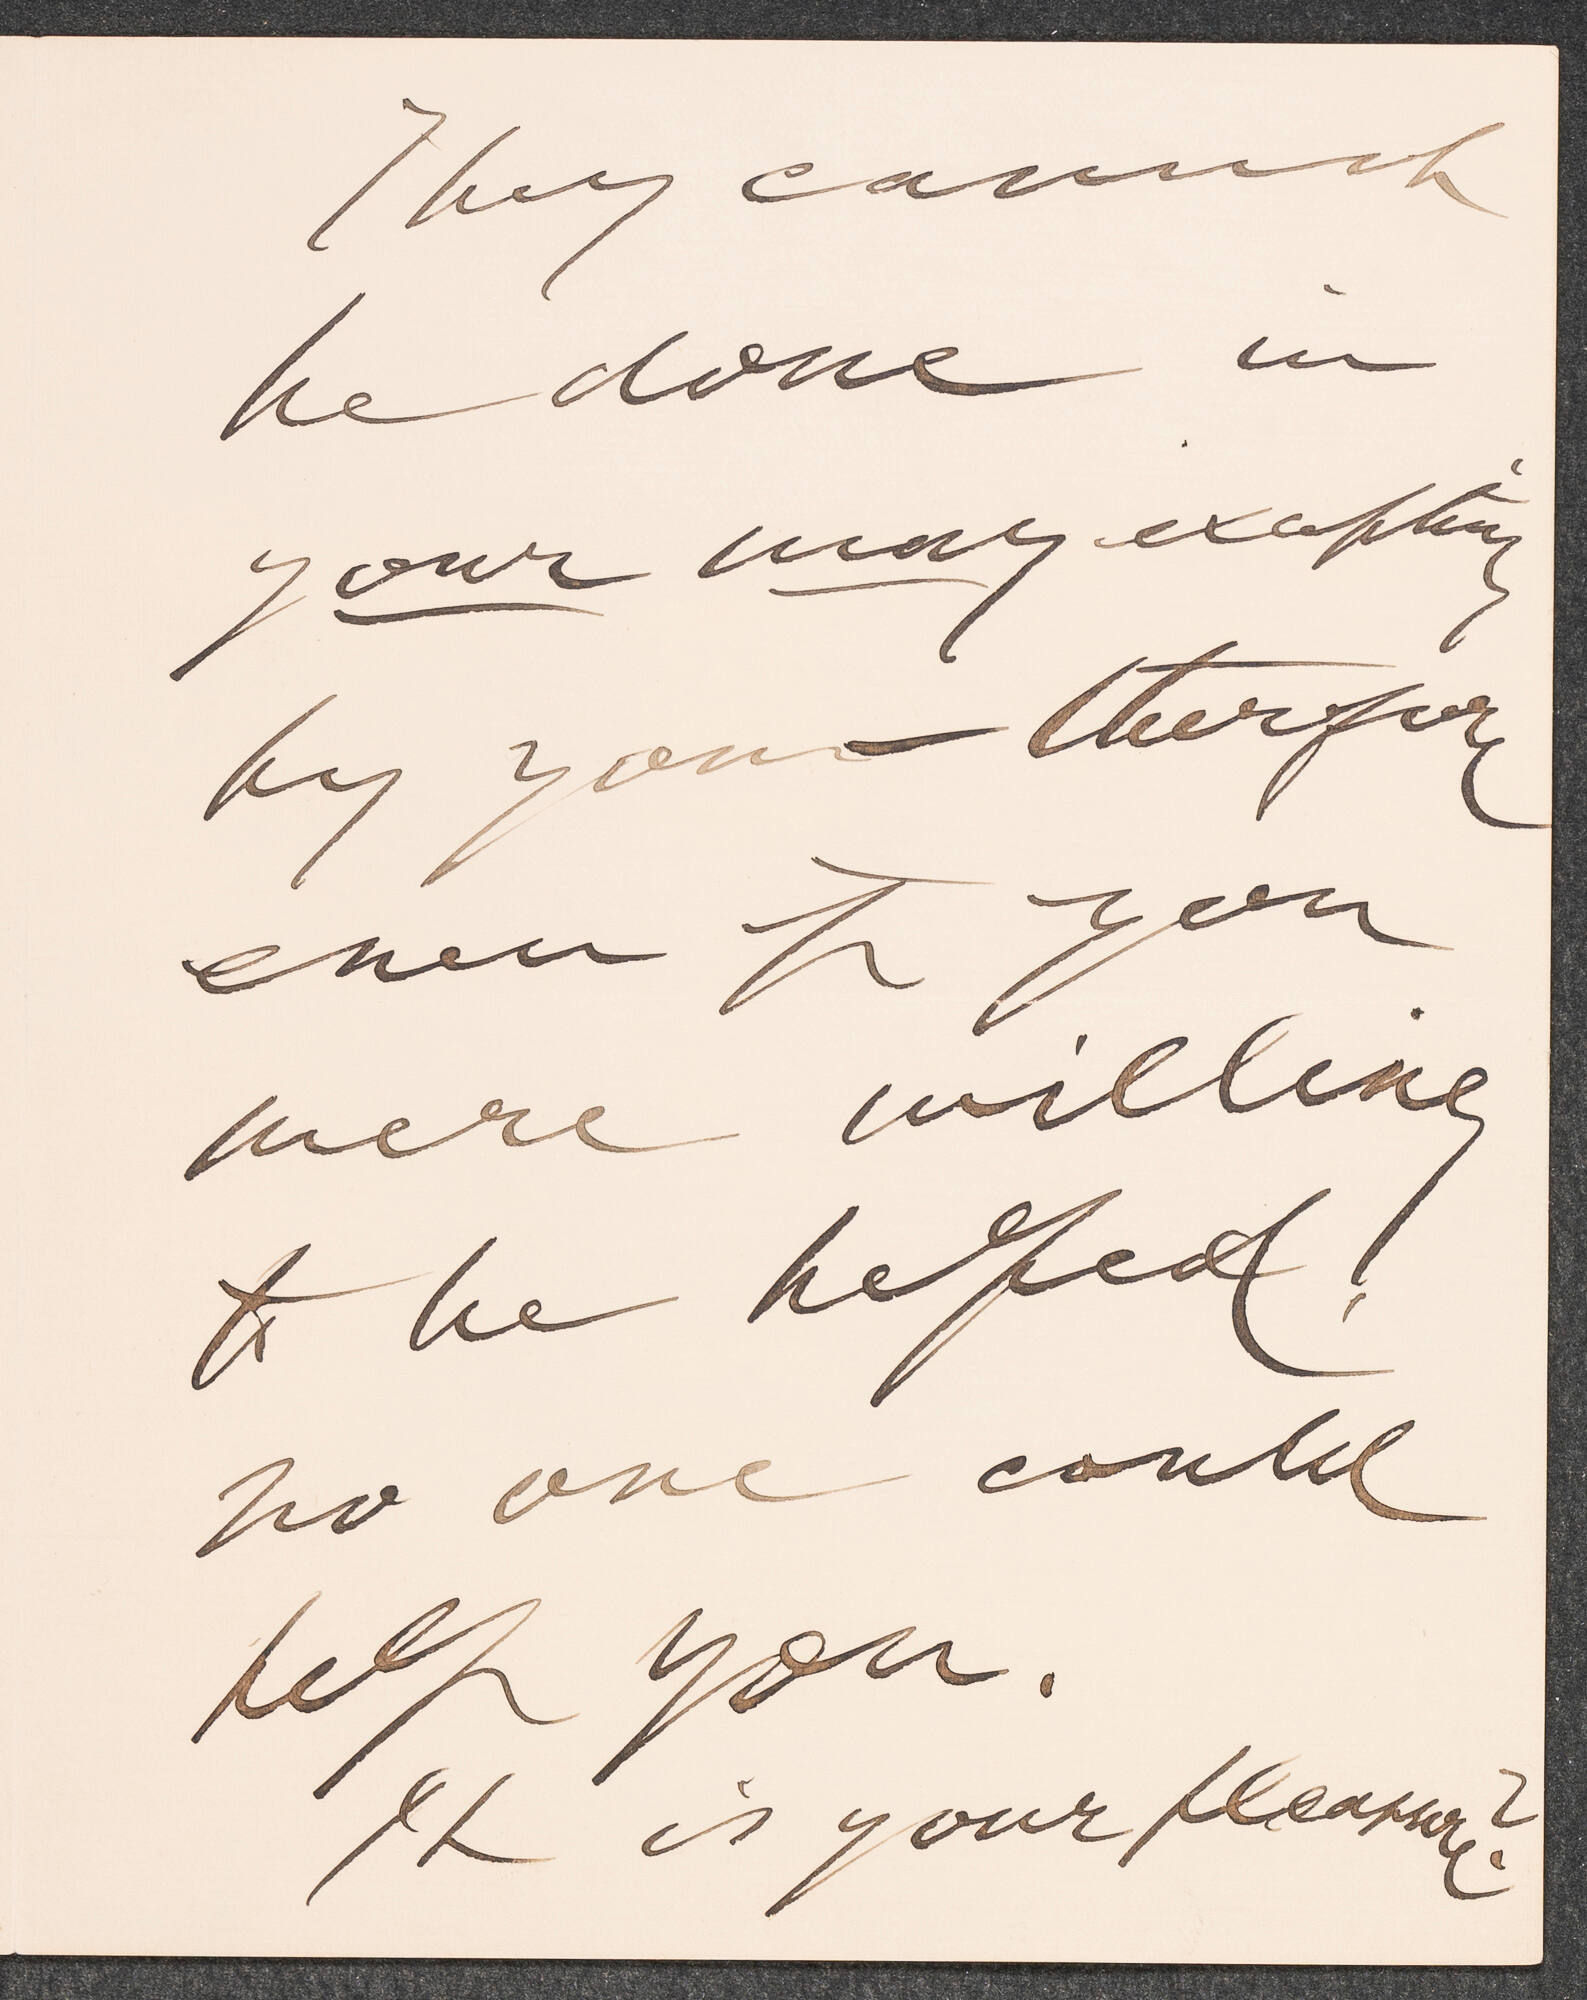 They cannot
be done in
your way excepting
by you — therefore
even if you
were willing
to be helped,
no one could
help you.
It is your pleasure?